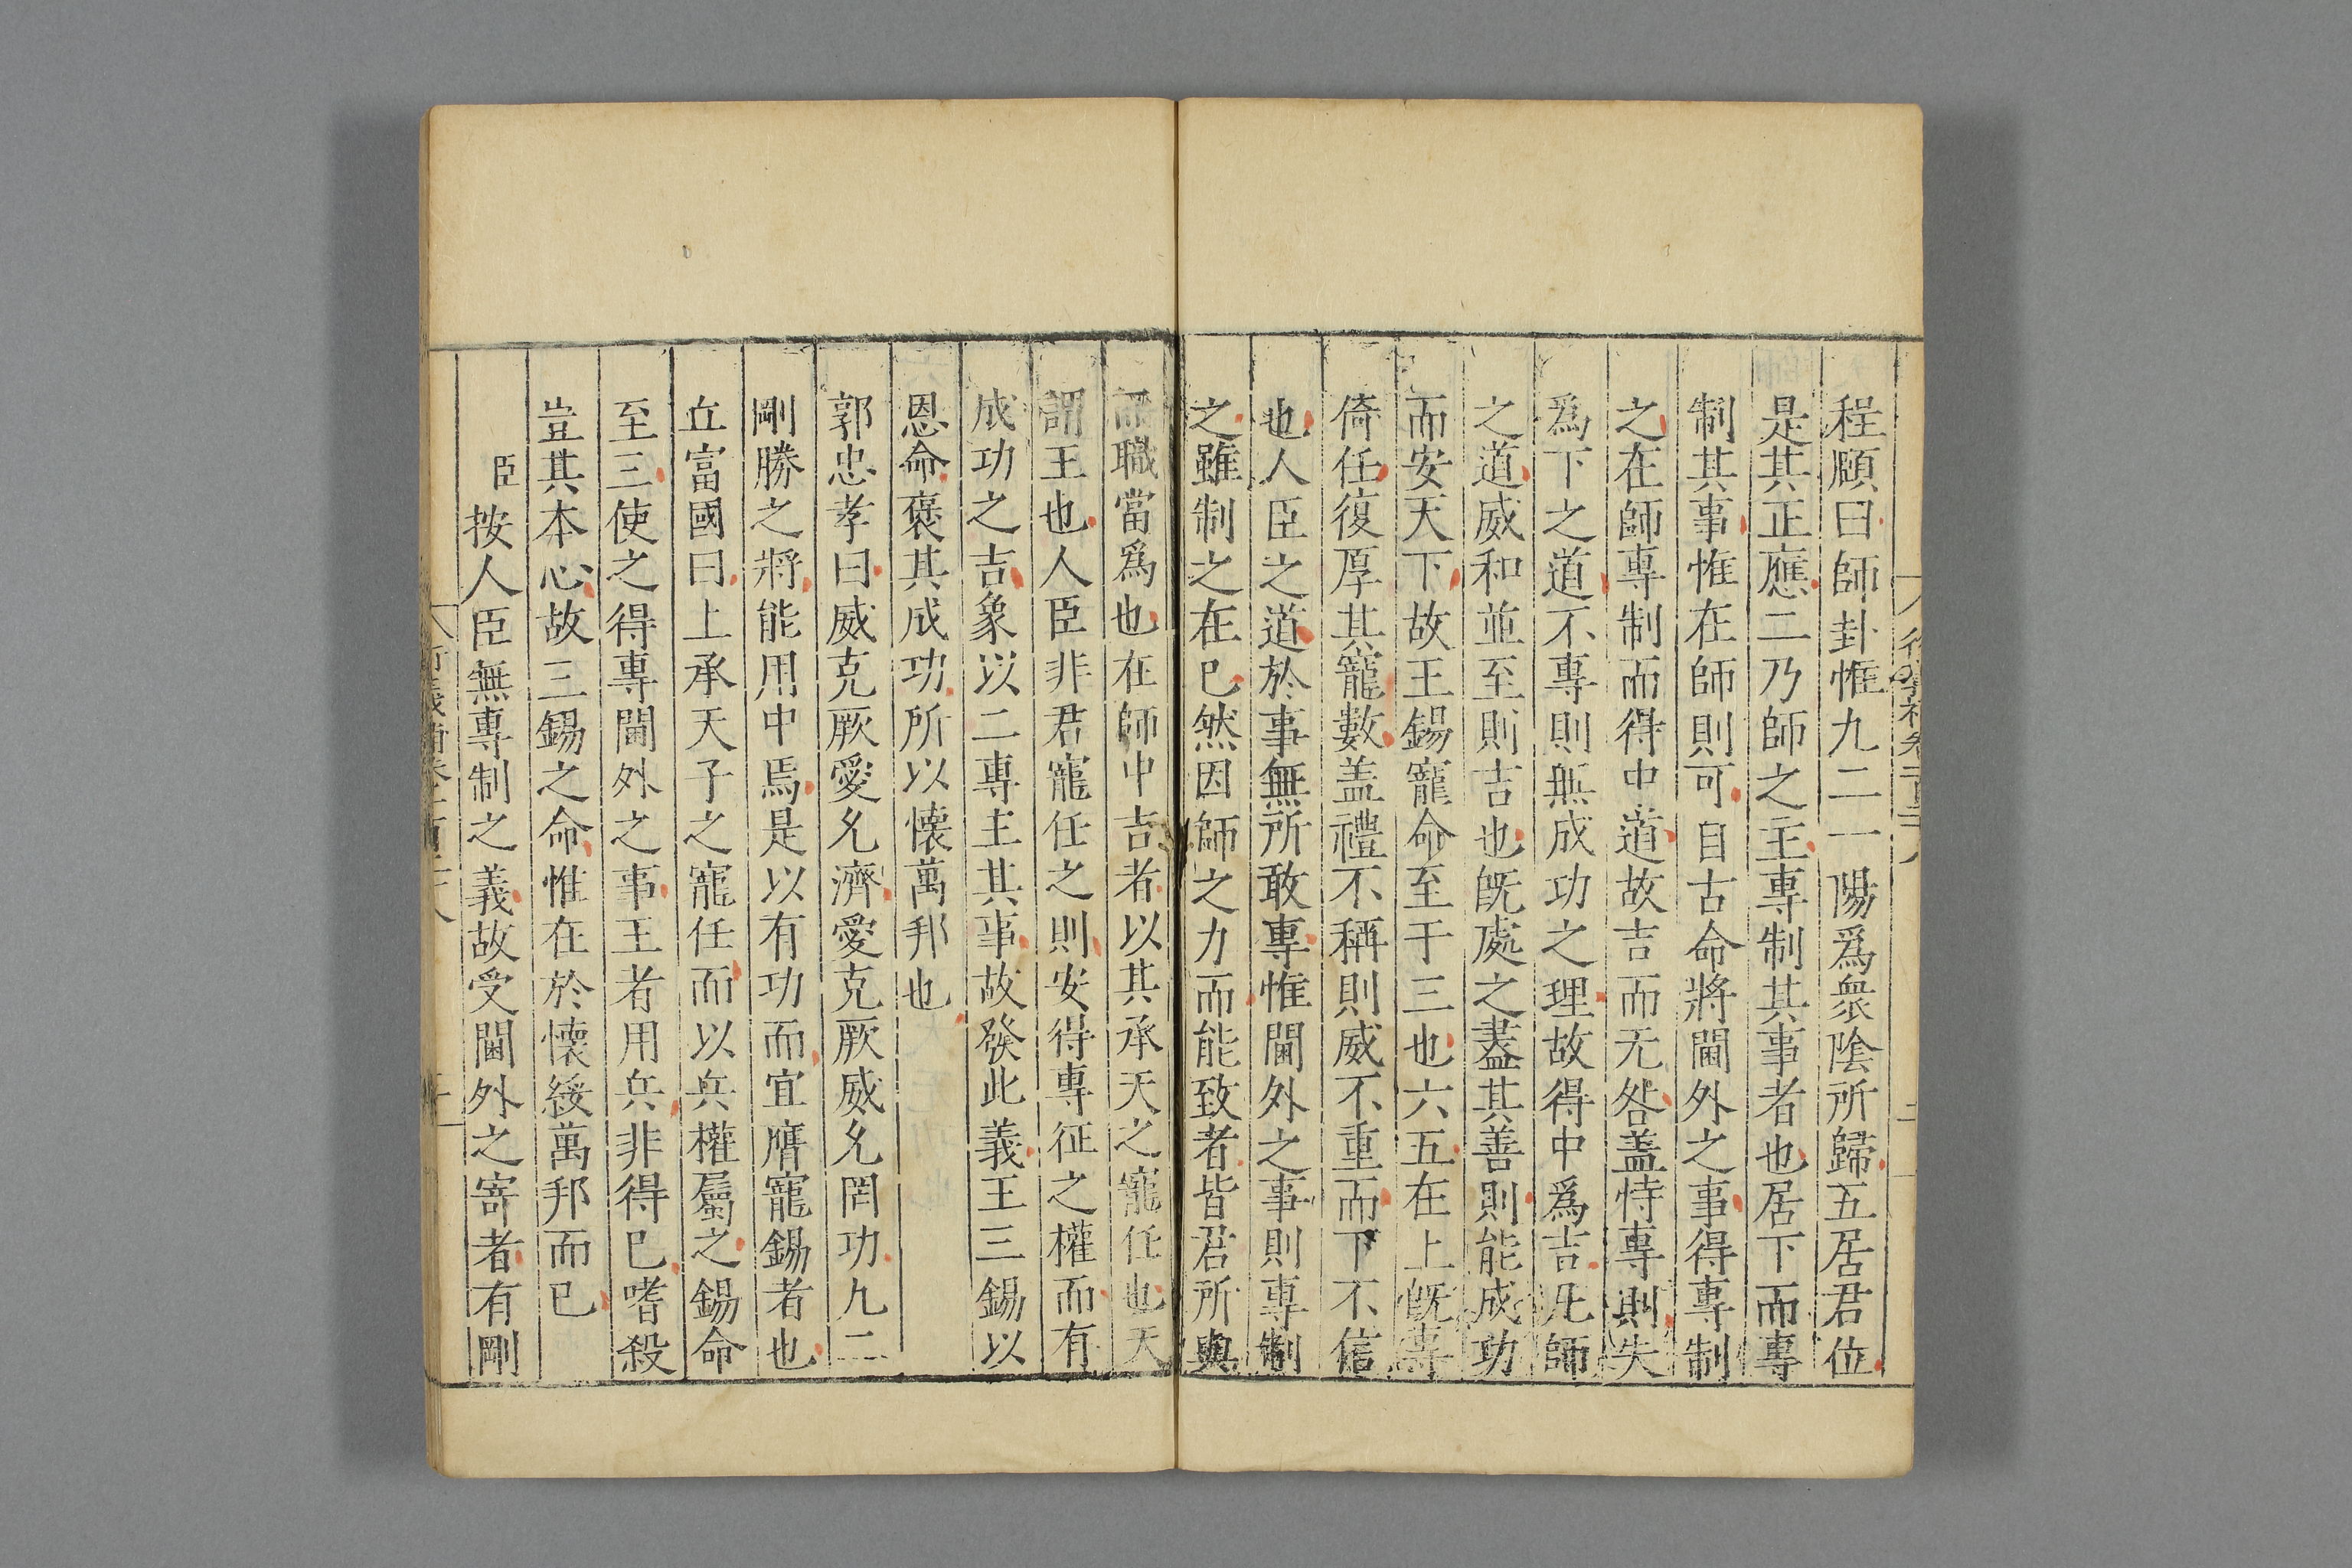 程頤曰師卦惟九二一陽爲衆陰所歸五居君位
是其正應二乃師之主專制其事者也居下而專
制其事惟在師則可自古命將閫外之事得專制
之在師專制而得中道故吉而无咎盖恃專則失
爲下之道不專則無成功之理故得中爲吉凡師
之道威和並至則吉也旣處之盡其善則能成功
而安天下故王錫寵命至于三也六五在上旣專
倚任復厚其寵數盖禮不稱則威不重而下不信
也人臣之道於事無所敢專惟閫外之事則專制
之雖制之在已然因師之力而能致者皆君所與
而職當爲也在師中吉者以其承天之寵任也天
謂王也人臣非君寵任之則安得專征之權而有
成功之吉象以二專主其事故發此義王三錫以
恩命褒其成功所以懷萬邦也
郭忠孝曰威克厥愛允濟愛克厥威允罔功九二
剛勝之將能用中焉是以有功而宜膺寵錫者也
丘富國曰上承天子之寵任而以兵權屬之錫命
至三使之得專閫外之事王者用兵非得已嗜殺
豈其本心故三錫之命惟在於懷綏萬邦而已
臣按人臣無專制之義故受閫外之寄者有剛